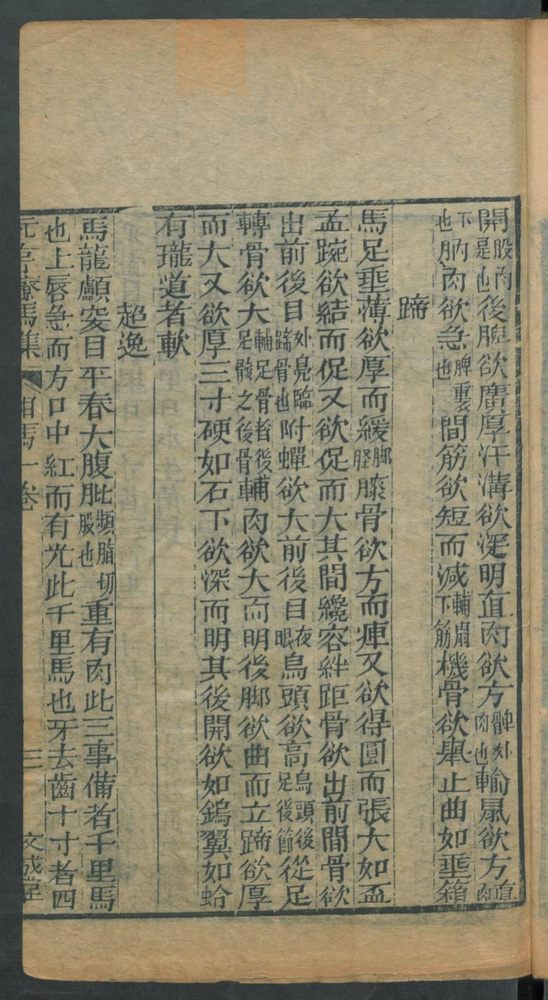 開股肉是也後髀欲廣厚汗溝欲深明直肉欲方髀外肉也輸鼠欲方直肉
下也肭肉欲急髀裏也間筋欲短而減輔肩下筋機骨欲舉上曲如垂箱
蹄
馬足垂薄欲厚而緩脚脛膝骨欲方而庳又欲得圓而張大如盃
盂踠欲結而促又欲促而大其間纔容絆距骨欲出前間骨欲
出前後目外鳧臨蹄骨也附蟬欲大前後目夜眼烏頭欲高烏頭後足後節從足
轉骨欲大輔足骨者後足骸之後骨輔肉欲大而明後脚欲曲而立蹄欲厚
而大又欲厚三寸硬如石下欲深而明其後開欲如鎢翼如蛤
有瓏道者軟
超逸
馬龍顱突目平脊大腹肶頻脂切股也重有肉此三事備者千里馬
也上唇急而方口中紅而有光此千里馬也牙去齒十寸者四
元亨療馬集 相馬一卷 三 文成堂